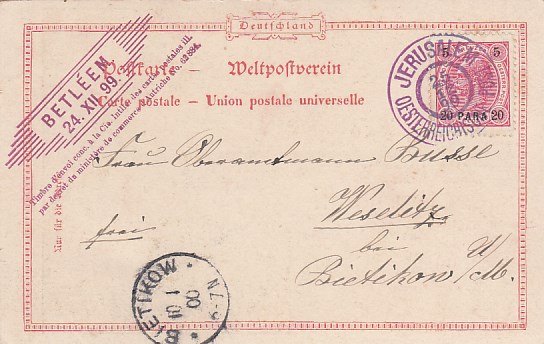 Deutschland
Postkarte – Weltpostverein
Carte postale – Union postale universelle
BETLÉEM
24. XII. 99.
Timbre d'envoi conc. à la Cie. Intle. des cartes postales ill.
par dépôt du ministère de commerce autriche No. 62884.
JERUSALEM
OESTERREICHISCHE
5 5
20 PARA 20
Frau Oberamtmann Busse
Weselitz
frei
bei
Bietikow U/M.
Nur für die
BIETIKOW
00